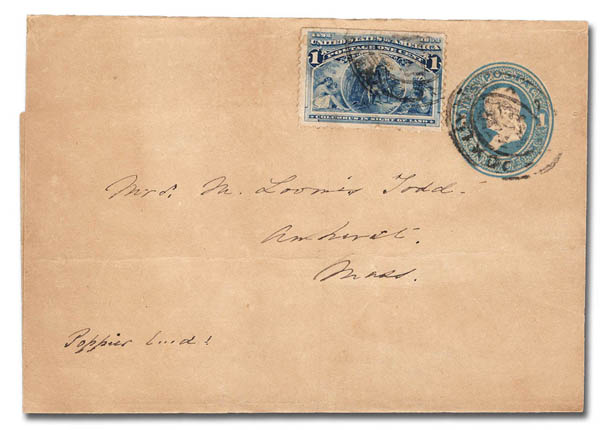 1492 1892
UNITED STATES OF AMERICA
POSTAGE ONE CENT
1 1
COLUMBUS IN SIGHT OF LAND
1
Mrs. M. Loomis Todd.
Amherst.
Mass.
Poppies